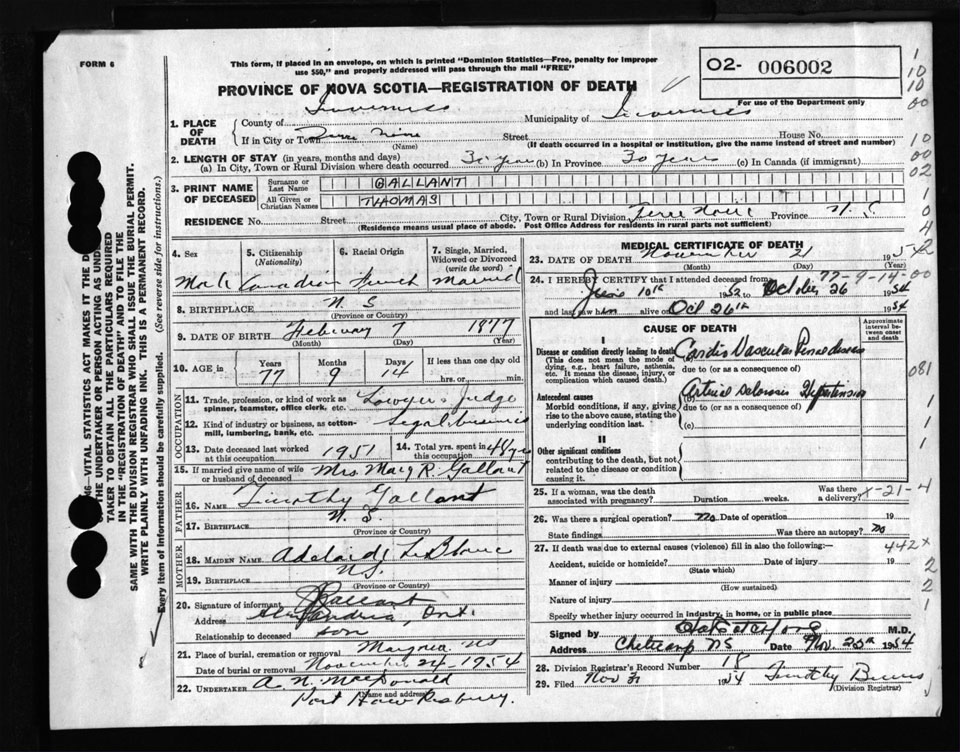 FORM 6
This form, if placed in an envelope, on which is printed "Dominion Statistics—Free, penalty for improper
use $50," and properly addressed will pass through the mail "FREE"
O2- 006002
PROVINCE OF NOVA SCOTIA—REGISTRATION OF DEATH
For use of the Department only
1. PLACE OF DEATH County of Inverness Municipality of Inverness
If in City or Town (Name) Street House No.
(If death occurred in a hospital or institution, give the name instead of street and number)
2. LENGTH OF STAY (in years, months and days)
(a) In City, Town or Rural Division where death occurred 30 years (b) In Province 30 years (c) In Canada (if immigrant)
3. PRINT NAME OF DECEASED Surname or Last Name GALLANT
All Given or Christian Names THOMAS
RESIDENCE No. Street City, Town or Rural Division Province N.S.
(Residence means usual place of abode. Post Office Address for rural parts not sufficient)
4. Sex 5. Citizenship (Nationality) 6. Racial Origin 7. Single, Married, Widowed or Divorced (write the word)
Male Canadian French Married
8. BIRTHPLACE N.S
(Province or Country)
9. DATE OF BIRTH February 7 1877
(Month) (Day) (Year)
10. AGE in Years Months Days If less than one day old
77 9 14 hrs. or min.
OCCUPATION
11. Trade, profession, or kind of work as spinner, teamster, office clerk, etc. Lawyer & Judge
12. Kind of industry or business, as cotton-mill, lumbering, bank, etc. Legal business
13. Date deceased last worked at this occupation 1951 14. Total yrs. spent in this occupation 48 yrs
15. If married give name of wife or husband of deceased Mrs Mary R. Gallant
FATHER
16. NAME Timothy Gallant
17. BIRTHPLACE N.S.
(Province or Country)
MOTHER
18. MAIDEN NAME Adelaide LeBlanc
19. BIRTHPLACE N.S.
(Province or Country)
20. Signature of informant Gallant
Address Alexandria, Ont.
Relationship to deceased son
21. Place of burial, cremation or removal NS
Date of burial or removal November 24-1954
22. UNDERTAKER A. N. MacDonald
(Name and address)
Port Hawkesbury.
MEDICAL CERTIFICATE OF DEATH
23. DATE OF DEATH November 21 1954
(Month) (Day) (Year)
24. I HEREBY CERTIFY that I attended deceased from 77-9-14-00
June 10th 1952 to October 26 1954
and last saw him alive on Oct 26th 1954
CAUSE OF DEATH
Approximate interval between onset and death
I
Disease or condition directly leading to death Cardio Vascular Renal disease
(This does not mean the mode of dying, e.g., heart failure, asthenia, etc. It means the disease, injury, or complication which caused death.)
due to (or as a consequence of)
081
Antecedent causes (b) Arterio Sclerosis Hypertension
Morbid conditions, if any, giving rise to the above cause, stating the underlying condition last.
due to (or as a consequence of)
(c)
II
Other significant conditions
contributing to the death, but not related to the disease or condition causing it.
25. If a woman, was the death associated with pregnancy? Duration weeks. Was there a delivery? X-21-4
26. Was there a surgical operation? no Date of operation 19
State findings Was there an autopsy? no
27. If death was due to external causes (violence) fill in also the following:— 442x
Accident, suicide or homicide? Date of injury 19
(State which)
Manner of injury
(How sustained)
Nature of injury
Specify whether injury occurred in industry, in home, or in public place
Signed by M.D.
Address Cheticamp NS Date Nov. 1954
28. Division Registrar's Record Number 18
29. Filed Nov 1954 Timothy
(Division Registrar)
TAKER TO OBTAIN ALL THE PARTICULARS REQUIRED
IN THE "REGISTRATION OF DEATH" AND TO FILE THE
SAME WITH THE DIVISION REGISTRAR WHO SHALL ISSUE THE BURIAL PERMIT.
WRITE PLAINLY WITH UNFADING INK. THIS IS A PERMANENT RECORD.
Every item of information should be carefully supplied. (See reverse side for instructions.)